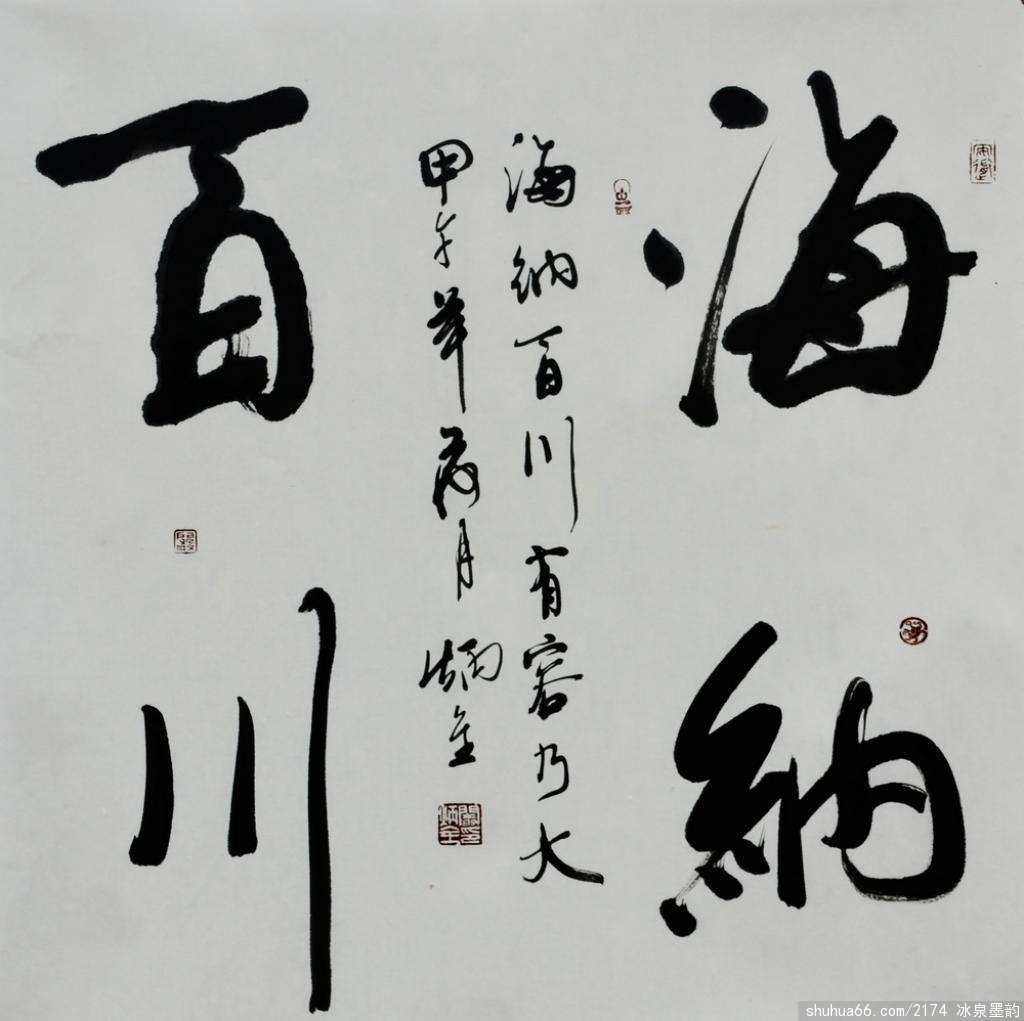 海納
海納百川有容乃大
甲午 月 炳全
百川
shuhua66.com/2174 冰泉墨韵